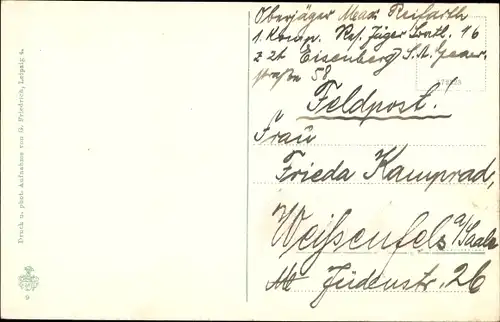 Oberjäger Max Reifarth
1. Komp. Res. Jäger Batl. 16
z Zt Eisenberg S.A. Geaer-
straße 58
Feldpost.
Frau
Frieda Kamprad,
Weißenfels a/Saale
Jüdenstr. 26
Druck u. phot. Aufnahme von G. Friedrich, Leipzig 4.